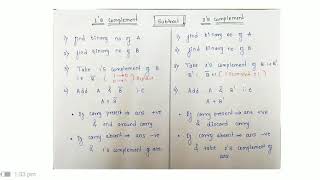 1's complement
Subtract
2's complement
1) find binary no of A
2) find binary no of B
3) Take 1's complement of B
i.e B̄
1→0
0→1
4) Add A & B̄ i.e
A + B̄
• If carry present ⇒ ans +ve
& end around carry
• If carry absent ⇒ ans -ve
& 1's complement of ans
1) find binary no of A
2) find binary no of B
3) Take 2's complement of B i.e
4) Add A & B' i.e
A + B'
• If carry present ⇒ ans +ve
& discard carry
• If carry absent ⇒ ans -ve
& take 2's complement of
ans
1:33 pm